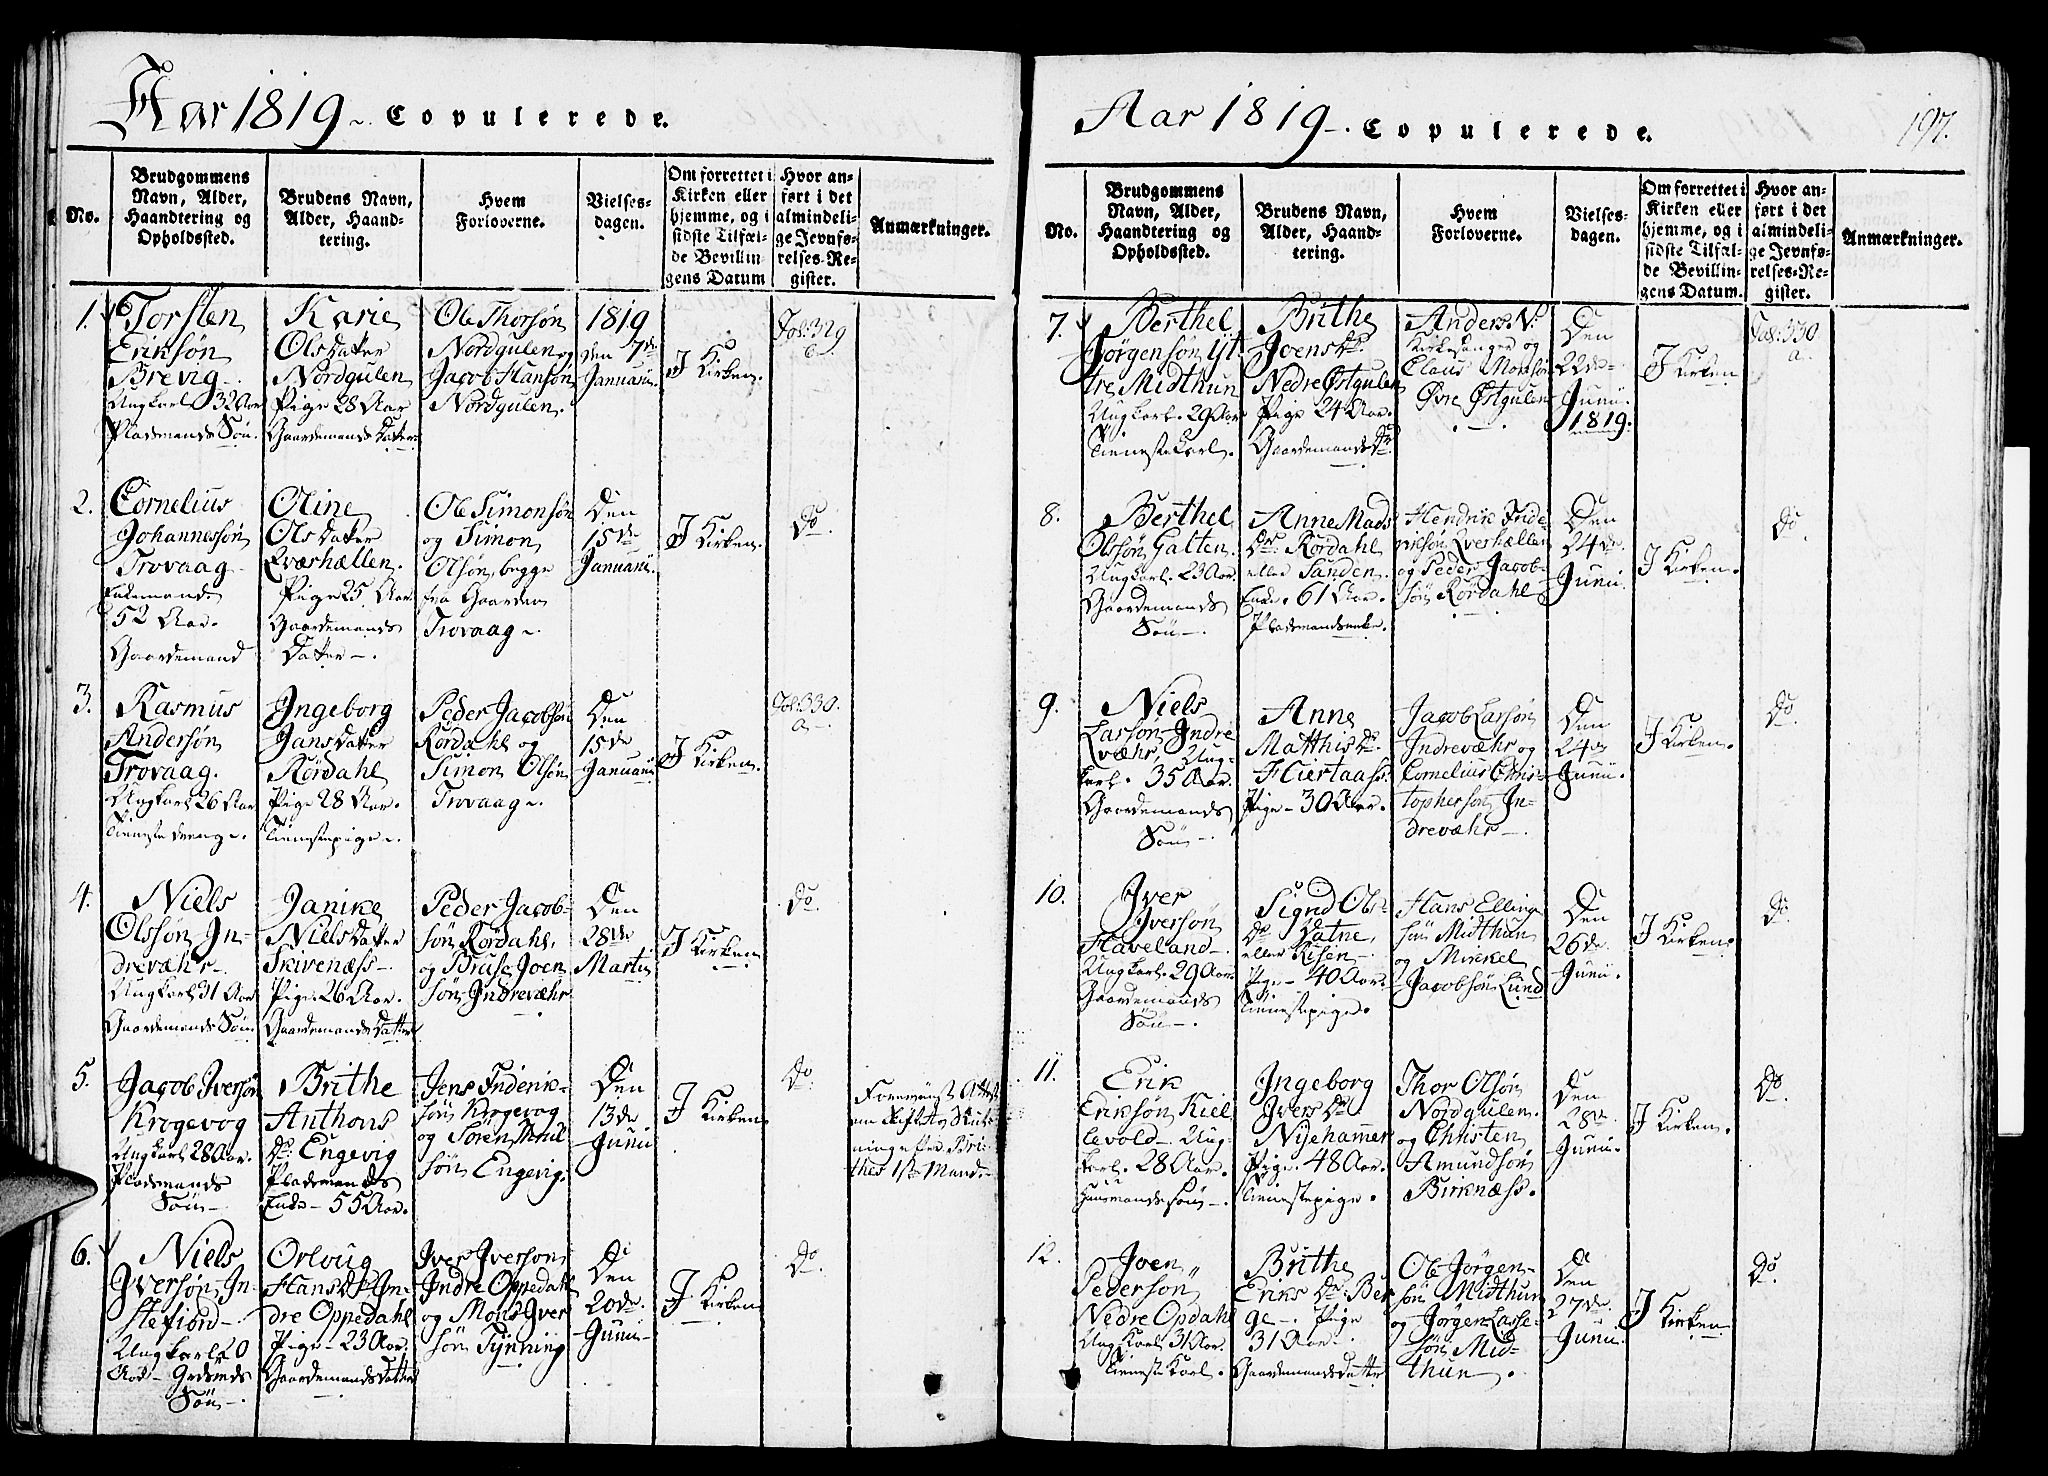 Aar 1819 Copulerede.
No.
Brudgommens Navn, Alder, Haandtering og Opholdssted.
Brudens Navn, Alder, Haandtering.
Hvem Forloverne.
Vielsesdagen.
Om forrettet i Kirken eller hjemme, og i sidste Tilfælde Bevillingens Datum
Hvor anført i det almindelige Jevnførelses-Register.
Anmærkninger.
1.
Torsten
Eriksøn
Brevig
Ungkarl 32 Aar
Pladsmands Søn.
Karie
Olsdatter
Nordgulen
Pige 28 Aar
Gaardemands Datter
Ole Thorsøn
Nordgulen og
Jacob Hansøn
Nordgulen.
1819
den 7de
Januarii
I Kirken.
Fol: 329
2.
Cornelius
Johannessøn
Trovaag
Enkemand
52 Aar.
Gaardemand
Oline
Olsdatter
Qværhællen.
Pige 25 Aar
Gaardemands
Datter
Ole Simonsøn
og Simon
Olsøn, begge
fra Gaarden
Trovaag
Den
15de
Januarii.
I Kirken.
Do.
3.
Rasmus
Andersøn
Trovaag.
Ungkarl 26 Aar
Tienestedreng
Ingeborg
Jansdatter
Rördahl
Pige 28 Aar.
Tienestepige
Peder Jacobsøn
Rördahl og
Simon Olsøn
Trovaag
Den
15de
Januarii
I Kirken.
Fol: 330.
a
4.
Niels
Olssøn In-
drevæhr
Ungkarl 31 Aar
Gaardemands Søn
Janike
Nielsdatter
Skivenæss
Pige 26 Aar.
Gaardemands Datter
Peder Jacob-
søn Rördahl,
og Bruse Joen
søn Indrevæhr
Den
28de
Martii
I Kirken
Do.
5.
Jacob Iversøn
Krogevog
Ungkarl 28 Aar.
Pladsmands
Søn
Brithe
Anthons
Dr. Engevig
Pladsmands
Enke 55 Aar.
Jens Friderik-
søn Krogevog
og Søren Nul
søn Engevig.
Den
13de
Junii
I Kirken
Do.
Foreviist Attst
om Skifte og Slut-
ning efter Bri-
thes 1ste Mand.
6.
Niels
Iversøn In-
stefiord
Ungkarl 20
Aar Grdmds
Søn
Orloug
Hans Dr. In-
dre Oppedahl
Pige 23 Aar.
Gaardemands Datter
Iver Iversøn
Indre Oppedahl
og Mons Iver
søn Tynning
Den
20de.
Junii
I Kirken
Do.
Aar 1819. Copulerede.
197.
No.
Brudgommens Navn, Alder, Haandtering og Opholdssted.
Brudens Navn, Alder, Haandtering.
Hvem Forloverne.
Vielsesdagen.
Om forrettet i Kirken eller hjemme, og i sidste Tilfælde Bevillingens Datum.
Hvor anført i det almindelige Jevnførelses-Register.
Anmærkninger.
7.
Berthel
Jørgensøn Yt-
tre Midthun
Ungkarl. 29 Aar
Tienestekarl.
Brithe
Joens Dr.
Nedre Østgulen
Pige 24 Aar.
Gaardemands Dr.
Anders N.
Kirkesanger og
Claus Monsøn
Øvre Østgulen
Den
22de
Junii.
1819.
I Kirken
Fol: 330
a.
8.
Berthel
Olssøn Galten.
Ungkarl. 23 Aar.
Gaardemands
Søn
Anne Mads
Dr. Rördahl
eller Sanden.
Enke. 61 Aar.
Pladsmandsenke.
Hendrik Fride
rikson Qverhællen
og Peder Jacob-
søn Rördahl
Den
24de.
Junii
I Kirken.
Do.
9.
Niels
Larsøn Indre
væhr, Ung-
karl. 35 Aar.
Gaardemands
Søn
Anne
Matthis Dr.
Hiertaass
Pige 30 Aar.
Jacob Larsøn
Indrevæhr og
Cornelius Chris-
tophersøn In-
drevæhr
Den
24de
Junii.
I Kirken.
Do.
10.
Iver
Iversøn
Haveland
Ungkarl. 29 Aar.
Gaardemands
Søn
Sigrid Ols-
Dr. Vatne,
eller Risen
Pige 40 Aar.
Tienestepige.
Hans Elling
søn Midthun
og Mickel
Jacobsøn Lund
Den
26de.
Junii.
I Kirken.
Do.
11.
Erik
Eriksøn Kiel
levold Ung-
karl. 28 Aar.
Huusmands Søn
Ingeborg
Ivers Dr.
Nyehamer
Pige. 48 Aar.
Tienestepige.
Thor Olsøn
Nordgulen.
og Christen
Amundsøn
Birknæss.
Den
28de
Junii.
I Kirken.
Do.
12.
Joen
Pedersøn
Nedre Opdahl
Ungkarl 31 Aar.
Tienestekarl.
Brithe
Eriks Dr. Ber
ge. Pige
31 Aar
Gaardemands Datter
Ole Jørgen-
søn Midthun
og Jørgen Lasse-
søn Mid-
thun.
Den
27de.
Junii
I Kirken
Do.